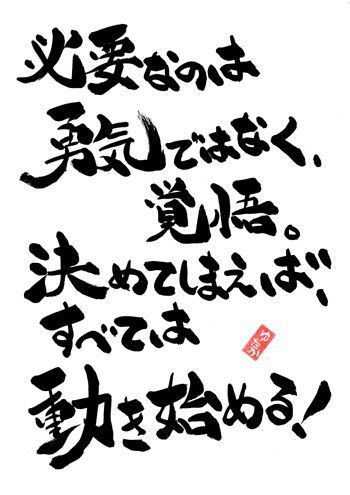 必要なのは
勇気ではなく、
覚悟。
決めてしまえば、
すべては
動き始める!
ゆたか